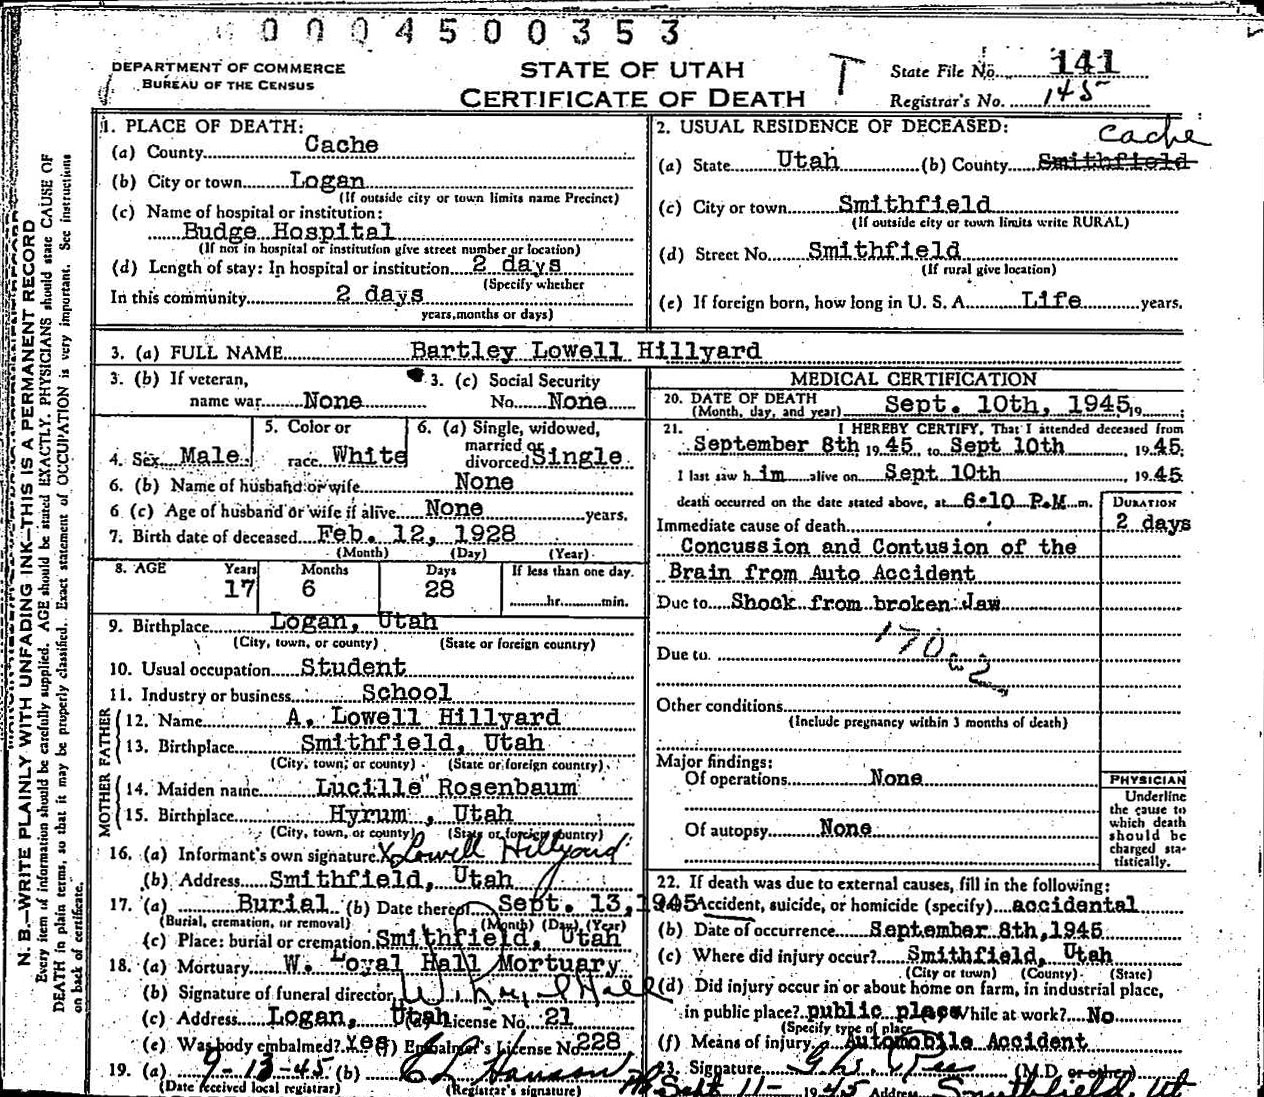 0004500353
DEPARTMENT OF COMMERCE
BUREAU OF THE CENSUS
STATE OF UTAH
CERTIFICATE OF DEATH
T
State File No. 141
Registrar's No. 145
N. B.—WRITE PLAINLY WITH UNFADING INK—THIS IS A PERMANENT RECORD
Every item of information should be carefully supplied. AGE should be stated EXACTLY. PHYSICIANS should state CAUSE OF
DEATH in plain terms, so that it may be properly classified. Exact statement of OCCUPATION is very important. See instructions
on back of certificate.
1. PLACE OF DEATH:
(a) County Cache
(b) City or town Logan
(If outside city or town limits name Precinct)
(c) Name of hospital or institution:
Budge Hospital
(If not in hospital or institution give street number or location)
(d) Length of stay: In hospital or institution 2 days
(Specify whether
In this community 2 days
years, months or days)
2. USUAL RESIDENCE OF DECEASED:
Cache
(a) State Utah (b) County Smithfield
(c) City or town Smithfield
(If outside city or town limits write RURAL)
(d) Street No. Smithfield
(If rural give location)
(e) If foreign born, how long in U. S. A. Life years.
3. (a) FULL NAME Bartley Lowell Hillyard
3. (b) If veteran,
name war None
3. (c) Social Security
No. None
4. Sex Male
5. Color or
race White
6. (a) Single, widowed,
married or
divorced Single
6. (b) Name of husband or wife None
6. (c) Age of husband or wife if alive None years.
7. Birth date of deceased Feb. 12, 1928
(Month) (Day) (Year)
8. AGE Years Months Days If less than one day.
17 6 28 hr. min.
9. Birthplace Logan, Utah
(City, town, or county) (State or foreign country)
10. Usual occupation Student
11. Industry or business School
FATHER
12. Name A. Lowell Hillyard
13. Birthplace Smithfield, Utah
(City, town, or county) (State or foreign country)
MOTHER
14. Maiden name Lucille Rosenbaum
15. Birthplace Hyrum, Utah
(City, town, or county) (State or foreign country)
16. (a) Informant's own signature X Lowell Hillyard
(b) Address Smithfield, Utah
17. (a) Burial (b) Date thereof Sept. 13, 1945
(Burial, cremation, or removal) (Month) (Day) (Year)
(c) Place: burial or cremation Smithfield, Utah
18. (a) Mortuary W. Loyal Hall Mortuary
(b) Signature of funeral director W. Loyal Hall
(c) Address Logan, Utah (d) License No. 21
(e) Was body embalmed? Yes (f) Embalmer's License No. 228
19. (a) 9-13-45 (b)
(Date received local registrar) (Registrar's signature)
MEDICAL CERTIFICATION
20. DATE OF DEATH
(Month, day, and year) Sept. 10th, 1945 19
21. I HEREBY CERTIFY, That I attended deceased from
September 8th 19 45, to Sept 10th, 19 45;
I last saw h im alive on Sept 10th 19 45
death occurred on the date stated above, at 6:10 P.M m.
DURATION
Immediate cause of death 2 days
Concussion and Contusion of the
Brain from Auto Accident
Due to Shock from broken Jaw
170 c 2
Due to
Other conditions
(Include pregnancy within 3 months of death)
Major findings:
Of operations None
Of autopsy None
PHYSICIAN
Underline
the cause to
which death
should be
charged sta-
tistically.
22. If death was due to external causes, fill in the following:
(a) Accident, suicide, or homicide (specify) accidental
(b) Date of occurrence September 8th, 1945
(c) Where did injury occur? Smithfield, Utah
(City or town) (County) (State)
(d) Did injury occur in or about home on farm, in industrial place,
in public place? public place While at work? No
(Specify type of place)
(f) Means of injury Automobile Accident
23. Signature (M.D. or other)
Sept 11- 1945 Address Smithfield, Ut